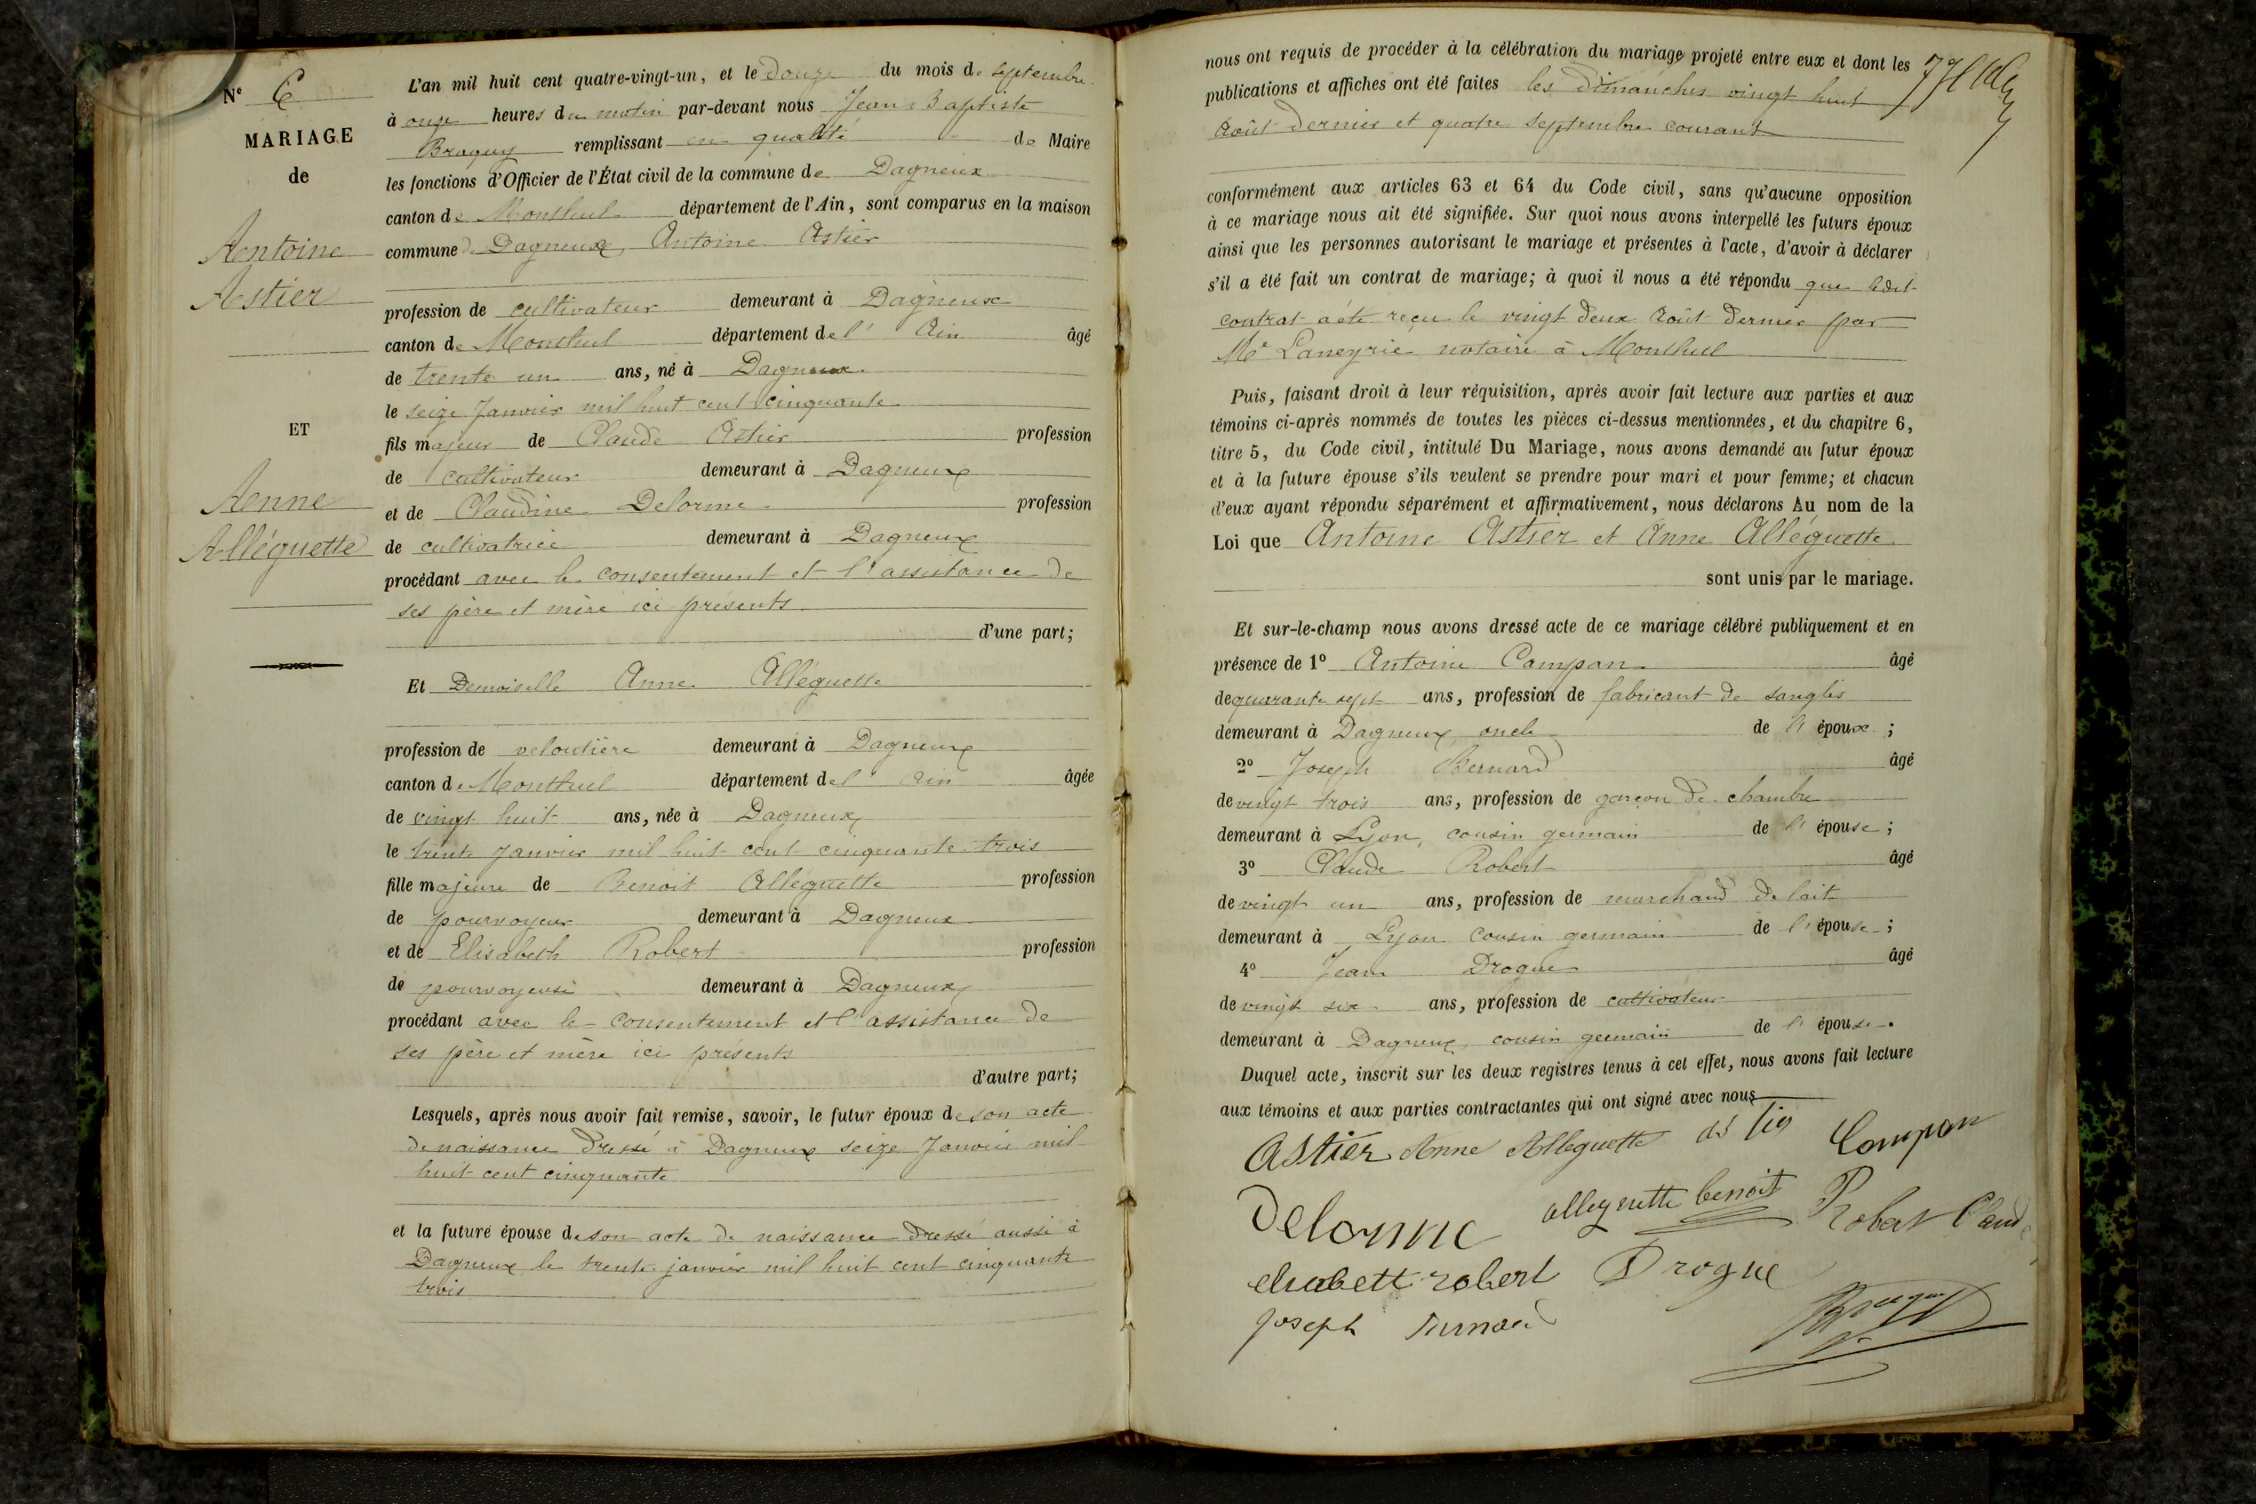 Nº 6
MARIAGE
de
Antoine
Astier
ET
Anne
Alléguette
L'an mil huit cent quatre-vingt-un, et le douze du mois de septembre
à onze heures du matin par-devant nous Jean-Baptiste
Braquy remplissant en qualité de Maire
les fonctions d'Officier de l'État civil de la commune de Dagneux
canton de Montluel département de l'Ain, sont comparus en la maison
commune de Dagneux, Antoine Astier
profession de cultivateur demeurant à Dagneux
canton de Montluel département de l' Ain âgé
de trente un ans, né à Dagneux
le seize Janvier mil huit cent cinquante
fils majeur de Claude Astier profession
de cultivateur demeurant à Dagneux
et de Claudine Delorme profession
de cultivatrice demeurant à Dagneux
procédant avec le consentement et l'assistance de
ses père et mère ici présents
d'une part;
Et Demoiselle Anne Alléguette
profession de veloutière demeurant à Dagneux
canton de Montluel département de l' Ain âgée
de vingt huit ans, née à Dagneux
le trente Janvier mil huit cent cinquante-trois
fille majeure de Benoit Alléguette profession
de pourvoyeur demeurant à Dagneux
et de Elisabeth Robert profession
de pourvoyeuse demeurant à Dagneux
procédant avec le consentement et l'assistance de
ses père et mère ici présents
d'autre part;
Lesquels, après nous avoir fait remise, savoir, le futur époux de son acte
de naissance dressé à Dagneux seize Janvier mil
huit cent cinquante
et la future épouse de son acte de naissance dressé aussi à
Dagneux le trente janvier mil huit cent cinquante
trois
nous ont requis de procéder à la célébration du mariage projeté entre eux et dont les
publications et affiches ont été faites les dimanches vingt huit
Août dernier et quatre septembre courant
conformément aux articles 63 et 64 du Code civil, sans qu'aucune opposition
à ce mariage nous ait été signifiée. Sur quoi nous avons interpellé les futurs époux
ainsi que les personnes autorisant le mariage et présentes à l'acte, d'avoir à déclarer
s'il a été fait un contrat de mariage; à quoi il nous a été répondu que ledit
contrat a été reçu le vingt deux Août dernier par
Me Laneyrie notaire à Montluel
Puis, faisant droit à leur réquisition, après avoir fait lecture aux parties et aux
témoins ci-après nommés de toutes les pièces ci-dessus mentionnées, et du chapitre 6,
titre 5, du Code civil, intitulé Du Mariage, nous avons demandé au futur époux
et à la future épouse s'ils veulent se prendre pour mari et pour femme; et chacun
d'eux ayant répondu séparément et affirmativement, nous déclarons Au nom de la
Loi que Antoine Astier et Anne Alléguette
sont unis par le mariage.
Et sur-le-champ nous avons dressé acte de ce mariage célébré publiquement et en
présence de 1º Antoine Campan âgé
de quarante sept ans, profession de fabricant de sangles
demeurant à Dagneux, oncle de l' époux ;
2º Joseph Bernard âgé
de vingt trois ans, profession de garçon de chambre
demeurant à Lyon, cousin germain de l' épouse ;
3º Claude Robert âgé
de vingt un ans, profession de marchand de lait
demeurant à Lyon cousin germain de l' épouse ;
4º Jean Drogue âgé
de vingt six ans, profession de cultivateur
demeurant à Dagneux, cousin germain de l' épouse.
Duquel acte, inscrit sur les deux registres tenus à cet effet, nous avons fait lecture
aux témoins et aux parties contractantes qui ont signé avec nous
Astier Anne Alleguette as tier Campan
Delorme alleguette benoit Robert Claude
elisabett robert Drogue
joseph Bernard Braquy